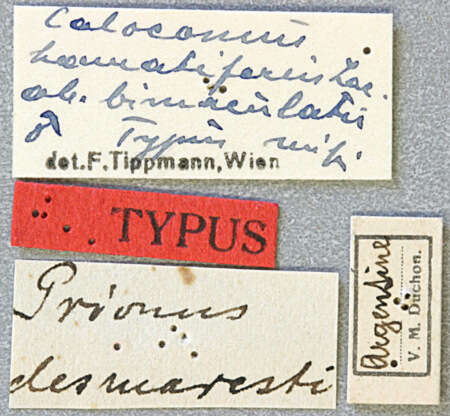 Calocomus
hamatiferus Lac.
ab. bimaculatus
♂ Typus mihi
det. F. Tippmann, Wien
TYPUS
Prionus
desmaresti
Argentine
V. M. Duchon.